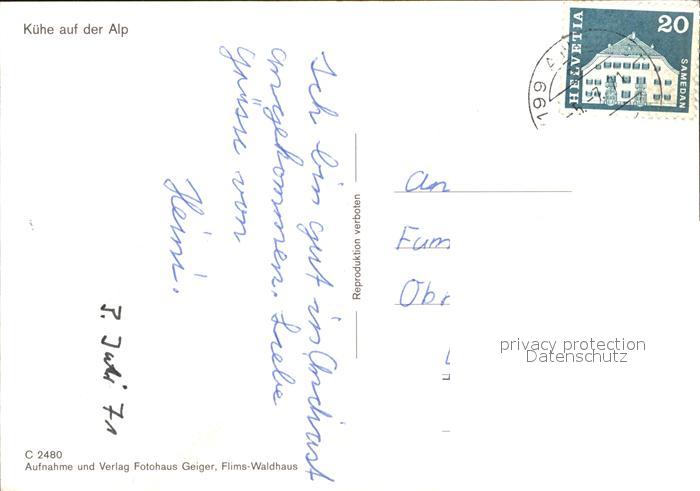 Kühe auf der Alp
HELVETIA
20
SAMEDAN
Ich bin gut in
angekommen. Liebe
Grüsse von
Heini.
Reproduktion verboten
An
Fum
Obr
privacy protection
Datenschutz
Juli 71
C 2480
Aufnahme und Verlag Fotohaus Geiger, Flims-Waldhaus